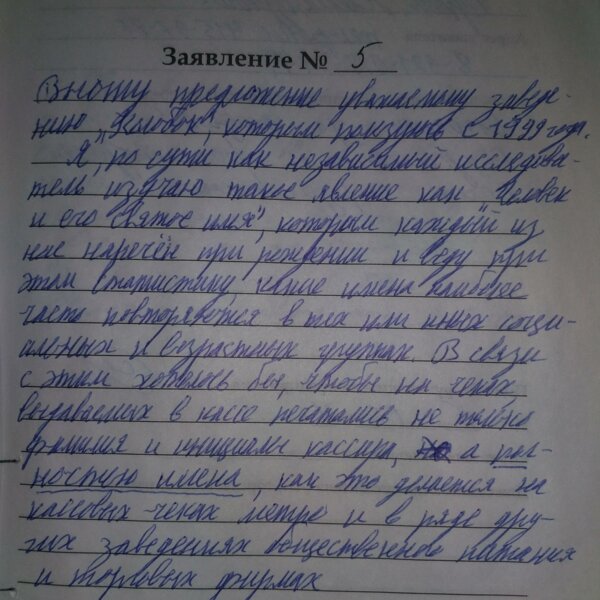 Заявление № 5
Вношу предложение уважаемому заведе-
нию „Колобок“, которым пользуюсь с 1999 года.
Я, по сути как независимый исследова-
тель изучаю такое явление как Человек
и его Святое имя", которым каждый из
нас наречён при рождении и веду при
этом статистику, какие имена наиболее
часто повторяются в тех или иных соци-
альных и возрастных группах. В связи
с этим хотелось бы, чтобы на чеках,
выдаваемых в кассе печатались не только
фамилия и инициалы кассира, а пол-
ностью имена, как это делается на
кассовых чеках метро и в ряде дру-
гих заведениях общественного питания
и торговых фирмах